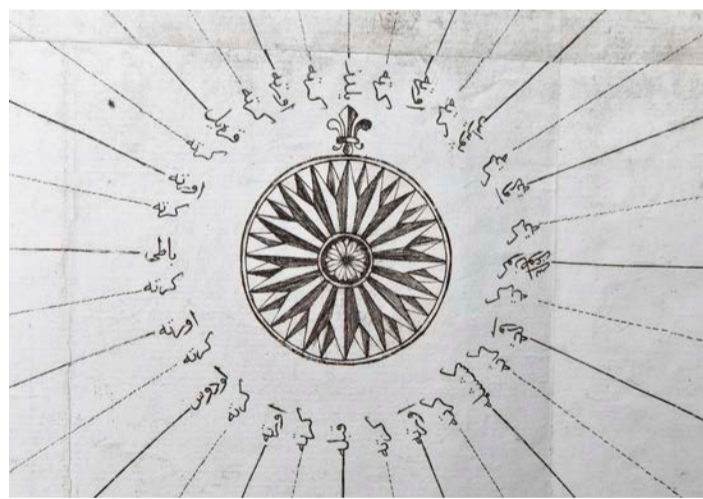 يلدز
كرته
اورته
كرته
پويراز
كرته
اورته
كرته
كرته
اورته
كرته
كشيشلمه
كرته
اورته
كرته
قبله
كرته
اورته
كرته
لودوس
كرته
اورته
كرته
باطى
كرته
اورته
كرته
قره يل
كرته
اورته
كرته